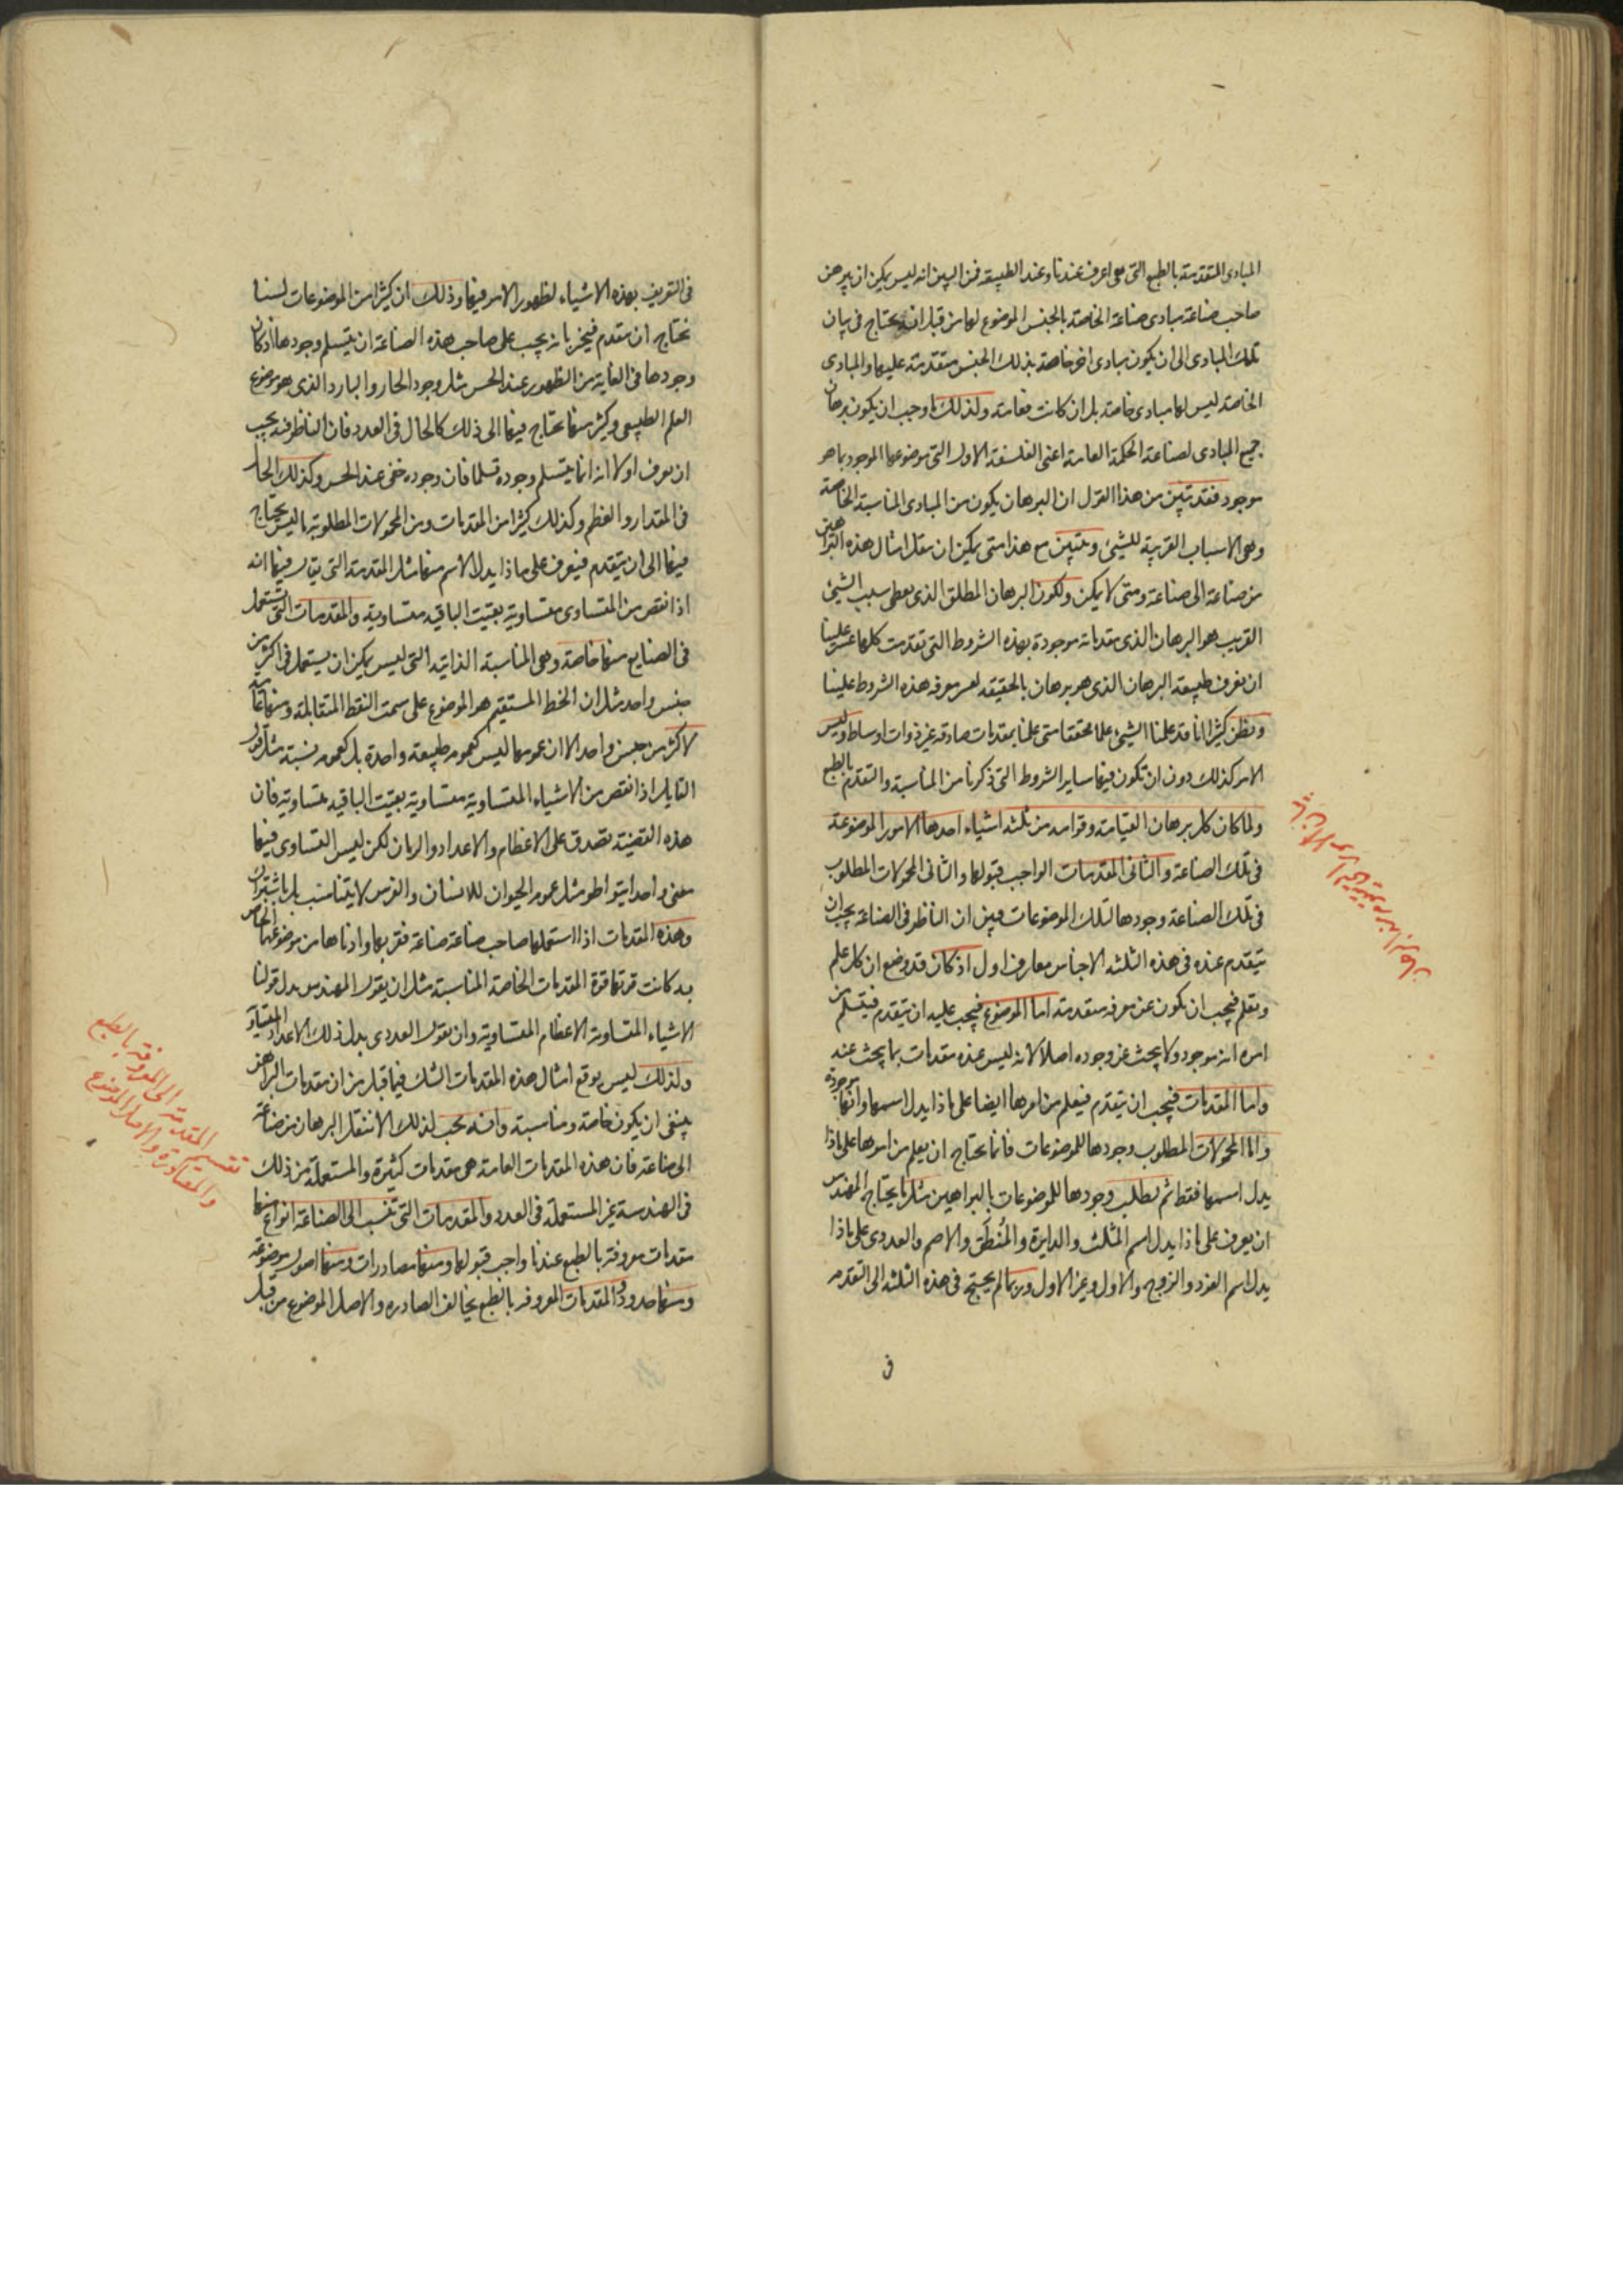 المبادى المتقدمة بالطبع التى هى اعرف عندنا وعند الطبيعه فمن البين انه ليس يمكن ان يبرهن
صاحب صناعة مبادى صناعة الخاصة بالجنس الموضوع لها من قبل انه يحتاج فى بيان
تلك المبادى الى ان يكون مبادى اخر خاصة بذلك الجنس متقدمة عليها والمبادى
الخاصة ليس لها مبادى خاصة بل ان كانت فعامة ولذلك ما وجب ان يكون برهان
جميع المبادى لصناعة الحكمة العامة اعنى الفلسفة الاولى التى موضوعها الموجود بما هو
موجود فقد تبين من هذا القول ان البرهان يكون من المبادى المناسبة الخاصة
وهى الاسباب القريبة للشيئ وتبين مع هذا متى يمكن ان ينقل امثال هذه البراهين
من صناعة الى صناعة ومتى لا يمكن ولكون البرهان المطلق الذى يعطى سبب الشيئ
القريب هو البرهان الذى مقدماته موجودة بهذه الشروط التى تقدمت كلها عسر علينا
ان نعرف طبيعة البرهان الذى هو برهان بالحقيقه لعسر معرفه هذه الشروط علينا
ونظن كثيرا انا قد علمنا الشيئ علما محققا متى علمنا بمقدمات صادقه غير ذوات اوساط وليس
الامر كذلك دون ان تكون فيها ساير الشروط التى ذكرنا من المناسبة والتقدم بالطبع
ولما كان كل برهان القيامه وقوامه من ثلثة اشياء احدها الامور الموضوعة
فى تلك الصناعة والثانى المقدمات الواجب قبولها والثانى المحمولات المطلوب
فى تلك الصناعة وجودها لتلك الموضوعات فبين ان الناظر فى الصناعة يجب ان
يتقدم عنده فى هذه الثلثة الاجناس معارف اول اذ كان قد وضع ان كل علم
وتعلم فيجب ان يكون عن معرفة متقدمة اما الموضوع فيجب عليه ان يتقدم فيتسلم من
امره انه موجود ولا يبحث عن وجوده اصلا لانه ليس عنده مقدمات بها يبحث عنه
واما المقدمات فيجب ان يتقدم فيعلم من امرها ايضا على ماذا يدل اسمها وانها موجودة
واما المحمولات المطلوب وجودها للموضوعات فانما يحتاج ان يعلم من امرها على ماذا
يدل اسمها فقط ثم يطلب وجودها للموضوعات بالبراهين مثل ما يحتاج المهندس
ان يعرف على ماذا يدل اسم المثلث والدايرة والمُنطَق والاصم والعددى على ماذا
يدل اسم الفرد والزوج والاول وغير الاول وربما لم يحتج فى هذه الثلثة الى التقدم
فى
فى التعريف بهذه الاشياء لظهور الامر فيها وذلك ان كثيرا من الموضوعات لسنا
نحتاج ان نتقدم فنخبر بانه يجب على صاحب هذه الصناعة ان يتسلم وجودها اذ كان
وجودها فى الغاية من الظهور عند الحس مثل وجود الحار والبارد الذى هو موضوع
العلم الطبيعى وكثير منها يحتاج فيها الى ذلك كالحال فى العدد فان الناظر فيه يجب
ان يعرف اولا انه انما يتسلم وجوده تسلما فان وجوده خفى عند الحس وكذلك الحال
فى المقدار والعظم وكذلك كثيرا من المقدمات ومن المحمولات المطلوبة ما ليس يحتاج
فيها الى ان يتقدم فيعرف على ماذا يدل الاسم منها مثل المقدمة التى يقال فيها انه
اذا نقص من المتساوى متساوية بقيت الباقيه متساوية والمقدمات التى تستعمل
فى الصنايع منها خاصة وهى المناسبة الذاتيه التى ليس يمكن ان يستعمل فى اكثر من
جنس واحد مثل ان الخط المستقيم هو الموضوع على سمت النقط المتقابلة ومنها عامة
لاكثر من جنس واحد الا ان عمومها ليس كعموم طبيعة واحدة بل كعموم نسبة مثل قول
القايل اذا نقص من الاشياء المتساوية متساوية بقيت الباقيه متساوية فان
هذه القضية تصدق على الاعظام والاعداد والزمان لكن ليس التساوى فيها
معنى واحدا يتواطو مثل عموم الحيوان للانسان والفرس لا يتناسب بل باشتراك
وهذه المقدمات اذا استعملها صاحب صناعة صناعة فقربها وادناها من موضوعها الخاص
به كانت قوتها قوة المقدمات الخاصة المناسبة مثل ان يقول المهندس بدل قولنا
الاشياء المتساوية الاعظام المتساوية وان يقول العددى بدل ذلك الاعداد المتساوية
ولذلك ليس يوقع امثال هذه المقدمات الشك فيما قبل من ان مقدمات البراهين
ينبغى ان يكون خاصة ومناسبة وانه يجب لذلك الا ينتقل البرهان من صناعة
الى صناعة فان هذه المقدمات العامة هى مقدمات كثيرة والمستعملة من ذلك
فى الهندسة غير المستعملة فى العدد والمقدمات التى تنسب الى الصناعة انواع منها
مقدمات معروفة بالطبع عندنا واجب قبولها ومنها مصادرات ومنها اصول موضوعة
ومنها حدود والمقدمات المعروفه بالطبع يخالف المصادره والاصل الموضوع من قبل
تقسيم المقدمة الى المعروفة بالطبع
والمصادرة والاصل الموضوع